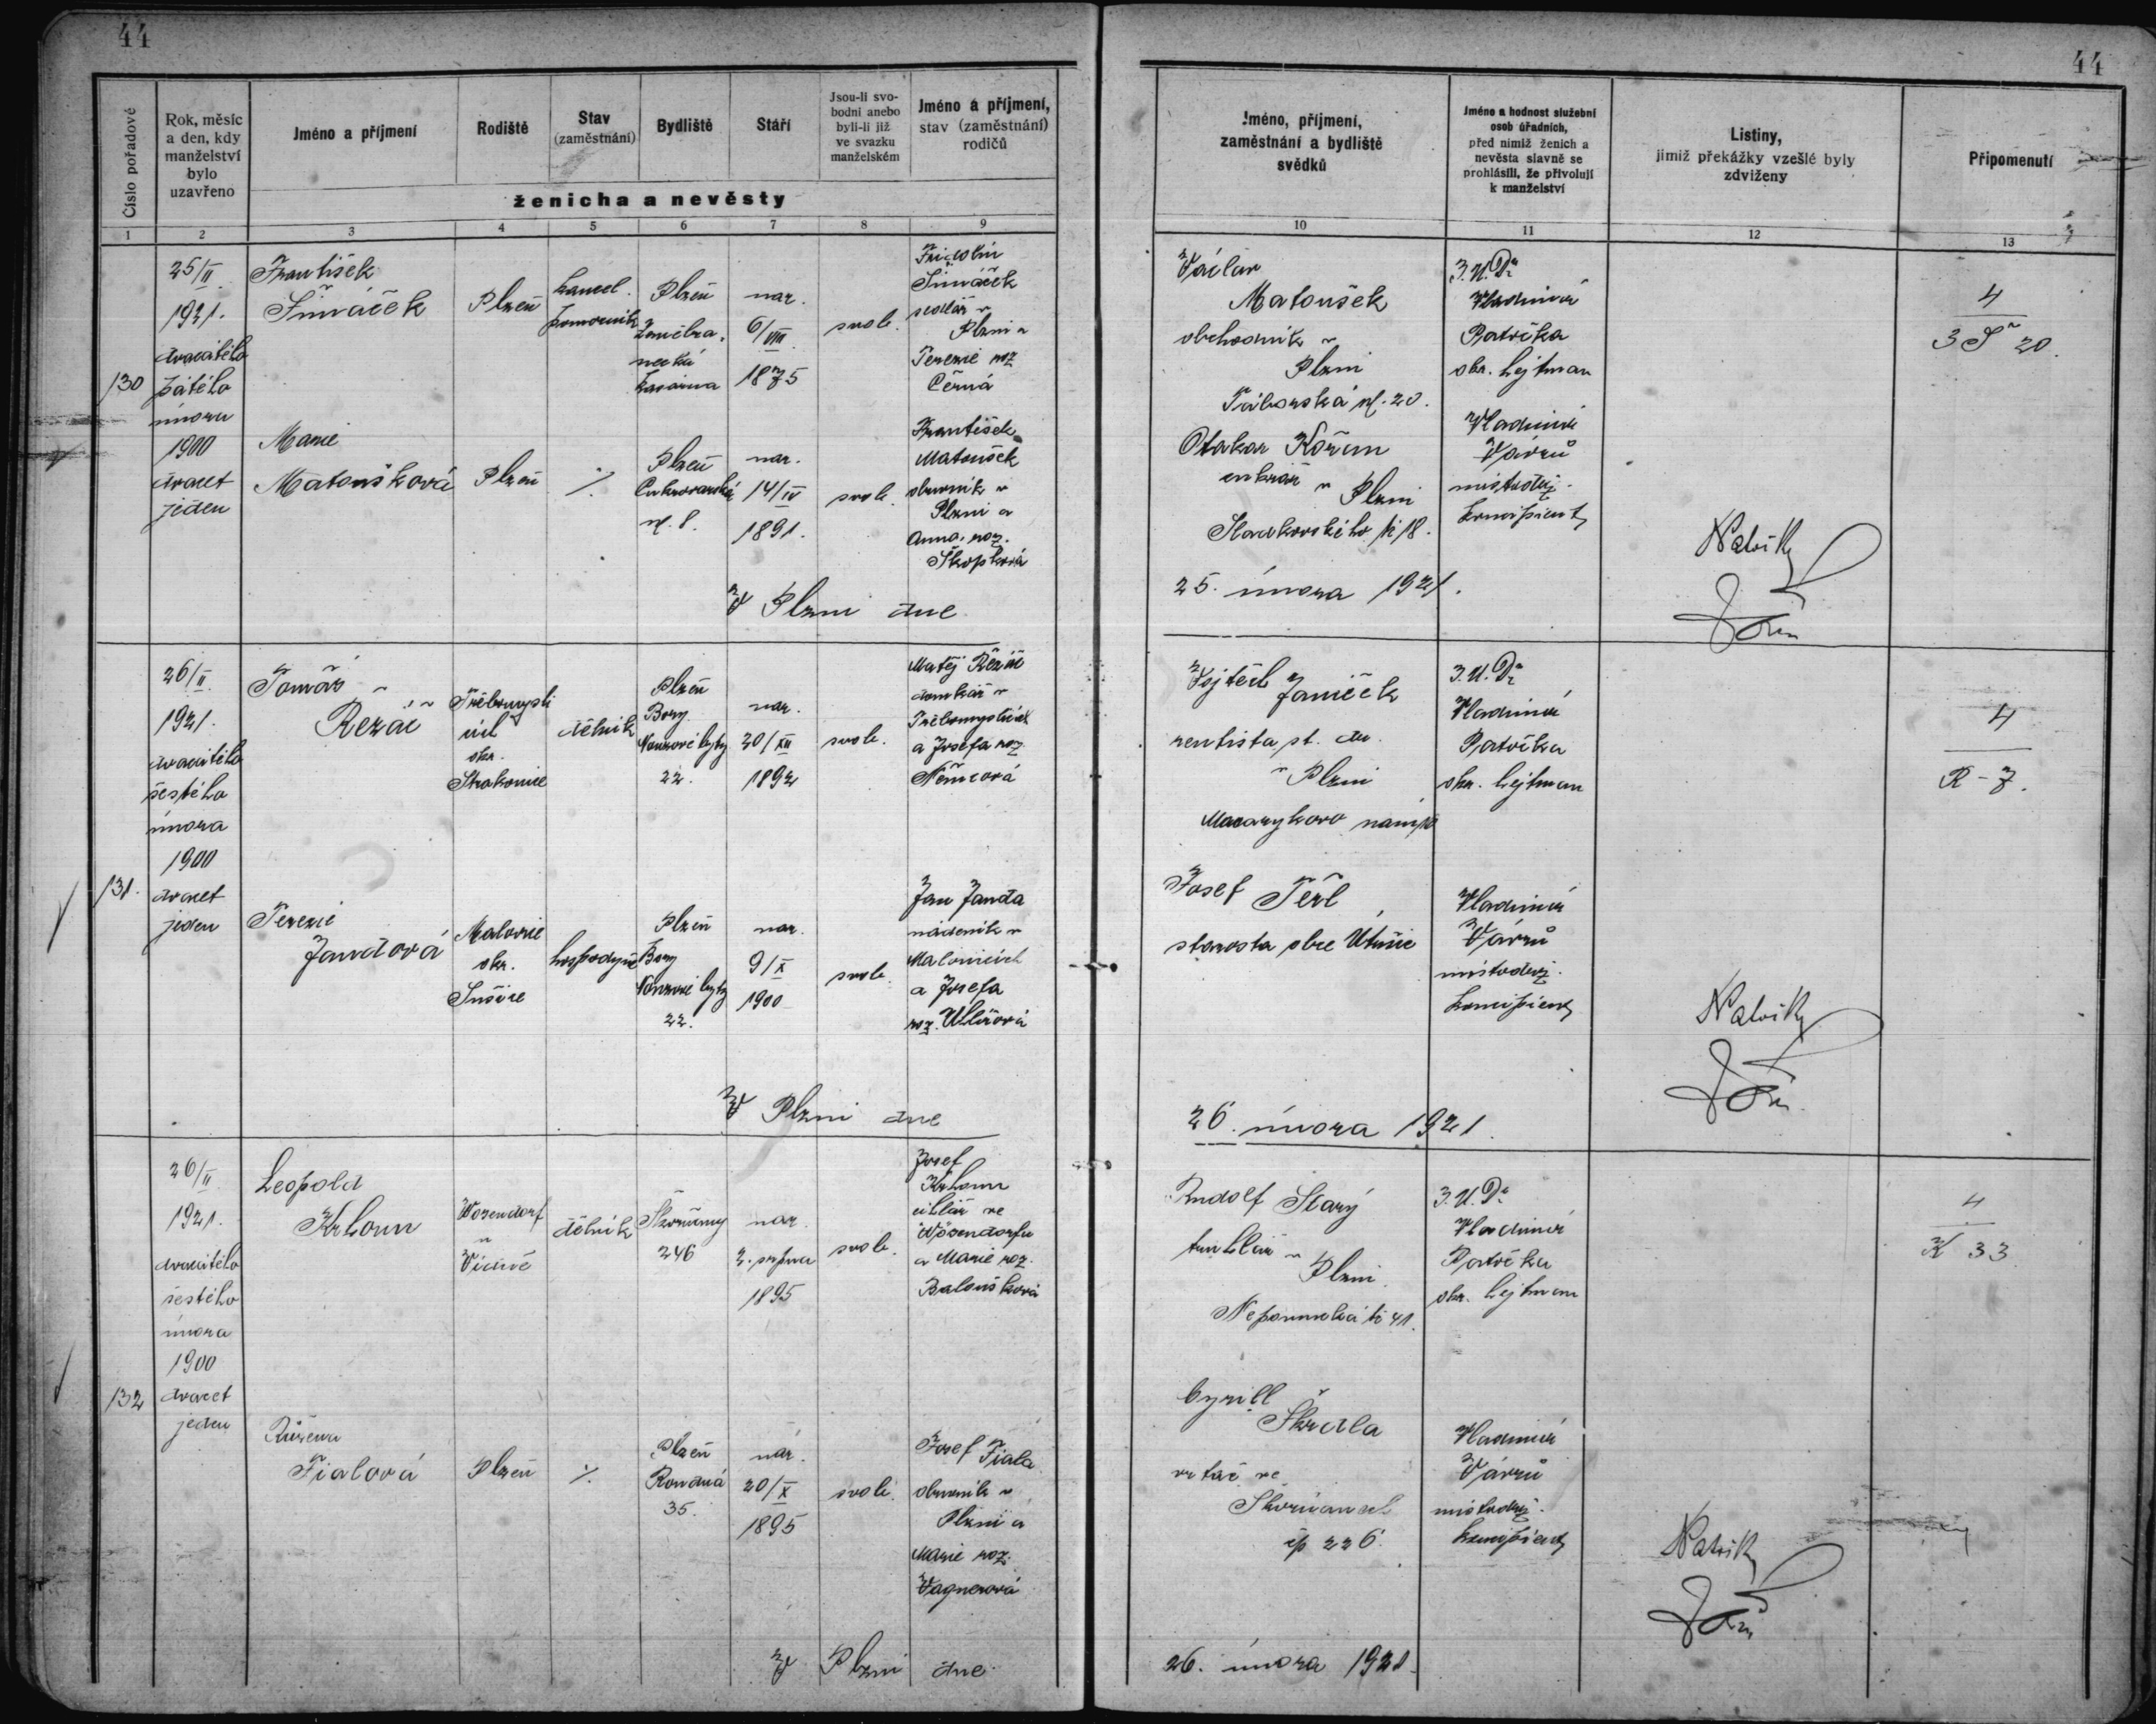 44
44
Číslo pořadové
Rok, měsíc
a den, kdy
manželství
bylo
uzavřeno
Jméno a příjmení
Rodiště
Stav
(zaměstnání)
Bydliště
Stáří
Jsou-li svo-
bodni anebo
byli-li již
ve svazku
manželském
Jméno a příjmení,
stav (zaměstnání)
rodičů
ženicha a nevěsty
Jméno, příjmení,
zaměstnání a bydliště
svědků
Jméno a hodnost služební
osob úřadních,
před nimiž ženich a
nevěsta slavně se
prohlásili, že přivolují
k manželství
Listiny,
jimiž překážky vzešlé byly
zdviženy
Připomenutí
1 2 3 4 5 6 7 8 9 10 11 12 13
130
25/II
1921.
dvacátého
pátého
února
1900
dvacet
jeden
František
Šimáček
Plzeň
kancel.
pomocník
Plzeň
Zeměbra-
necká
kasárna
nar.
6/VIII
1875
svob.
Šimáček
sedlář v
Plzni a
Terezie roz
Černá
Marie
Matoušková
Plzeň
%
Plzeň
Cukrovarská
nar.
14/IV
1891.
svob.
František
Matoušek
obuvník v
Plzni a
Anna, roz.
Škopková
V Plzni dne
Václav
Matoušek
obchodník v
Plzni
Táborská ul. 20.
Otakar Kořan
cukrář v Plzni
J.U.Dr
Vladimír
Patrčka
okr. hejtman
Vladimír
Vávrů
místodrž.
koncipient
25. února 1921.
4
3 Š 20.
131.
26/II
1921.
dvacátého
šestého
února
1900
dvacet
jeden
Tomáš
Řezáč
okr.
Strakonice
dělník
Plzeň
Bory
Nouzové byty
22.
nar.
20/XII
1892
svob.
Matěj Řezáč
domkář v
a Josefa roz
Němcová
Terezie
Jandová
Malonice
okr.
Sušice
hospodyně
Plzeň
Bory
Nouzové byty
22.
nar.
9/X
1900
svob.
Jan Janda
nádeník v
Malonicích
a Josefa
roz. Uhlířová
V Plzni dne
Vojtěch Janíček
rentista st. dr.
v Plzni
Masarykovo nám.
Josef Terl,
starosta obce Útušic
J.U.Dr
Vladimír
Patrčka
okr. hejtman
Vladimír
Vávrů
místodrž.
koncipient
26. února 1921.
4
R - 7.
132
26/II
1921.
dvacátého
šestého
února
1900
dvacet
jeden
Leopold
Krhoun
Wösendorf
u
Vídně
dělník
Skvrňany
246
nar.
2. srpna
1895
svob.
Josef
Krhoun
cihlář ve
Wösendorfu
a Marie roz.
Baloušková
Růžena
Fialová
Plzeň
%
Plzeň
Roudná
35.
nar.
20/X
1895
svob.
Josef Fiala
obuvník v
Plzni a
Marie roz.
Vagnerová
V Plzni dne
Rudolf Starý
truhlář v
Plzni
Nepomucká tř 41.
Cyrill
Škrdla
vrtač ve
Skvrňanech
čp 226.
J.U.Dr
Vladimír
Patrčka
okr. hejtman
Vladimír
Vávrů
místodrž.
koncipient
26. února 1921.
4
K 33